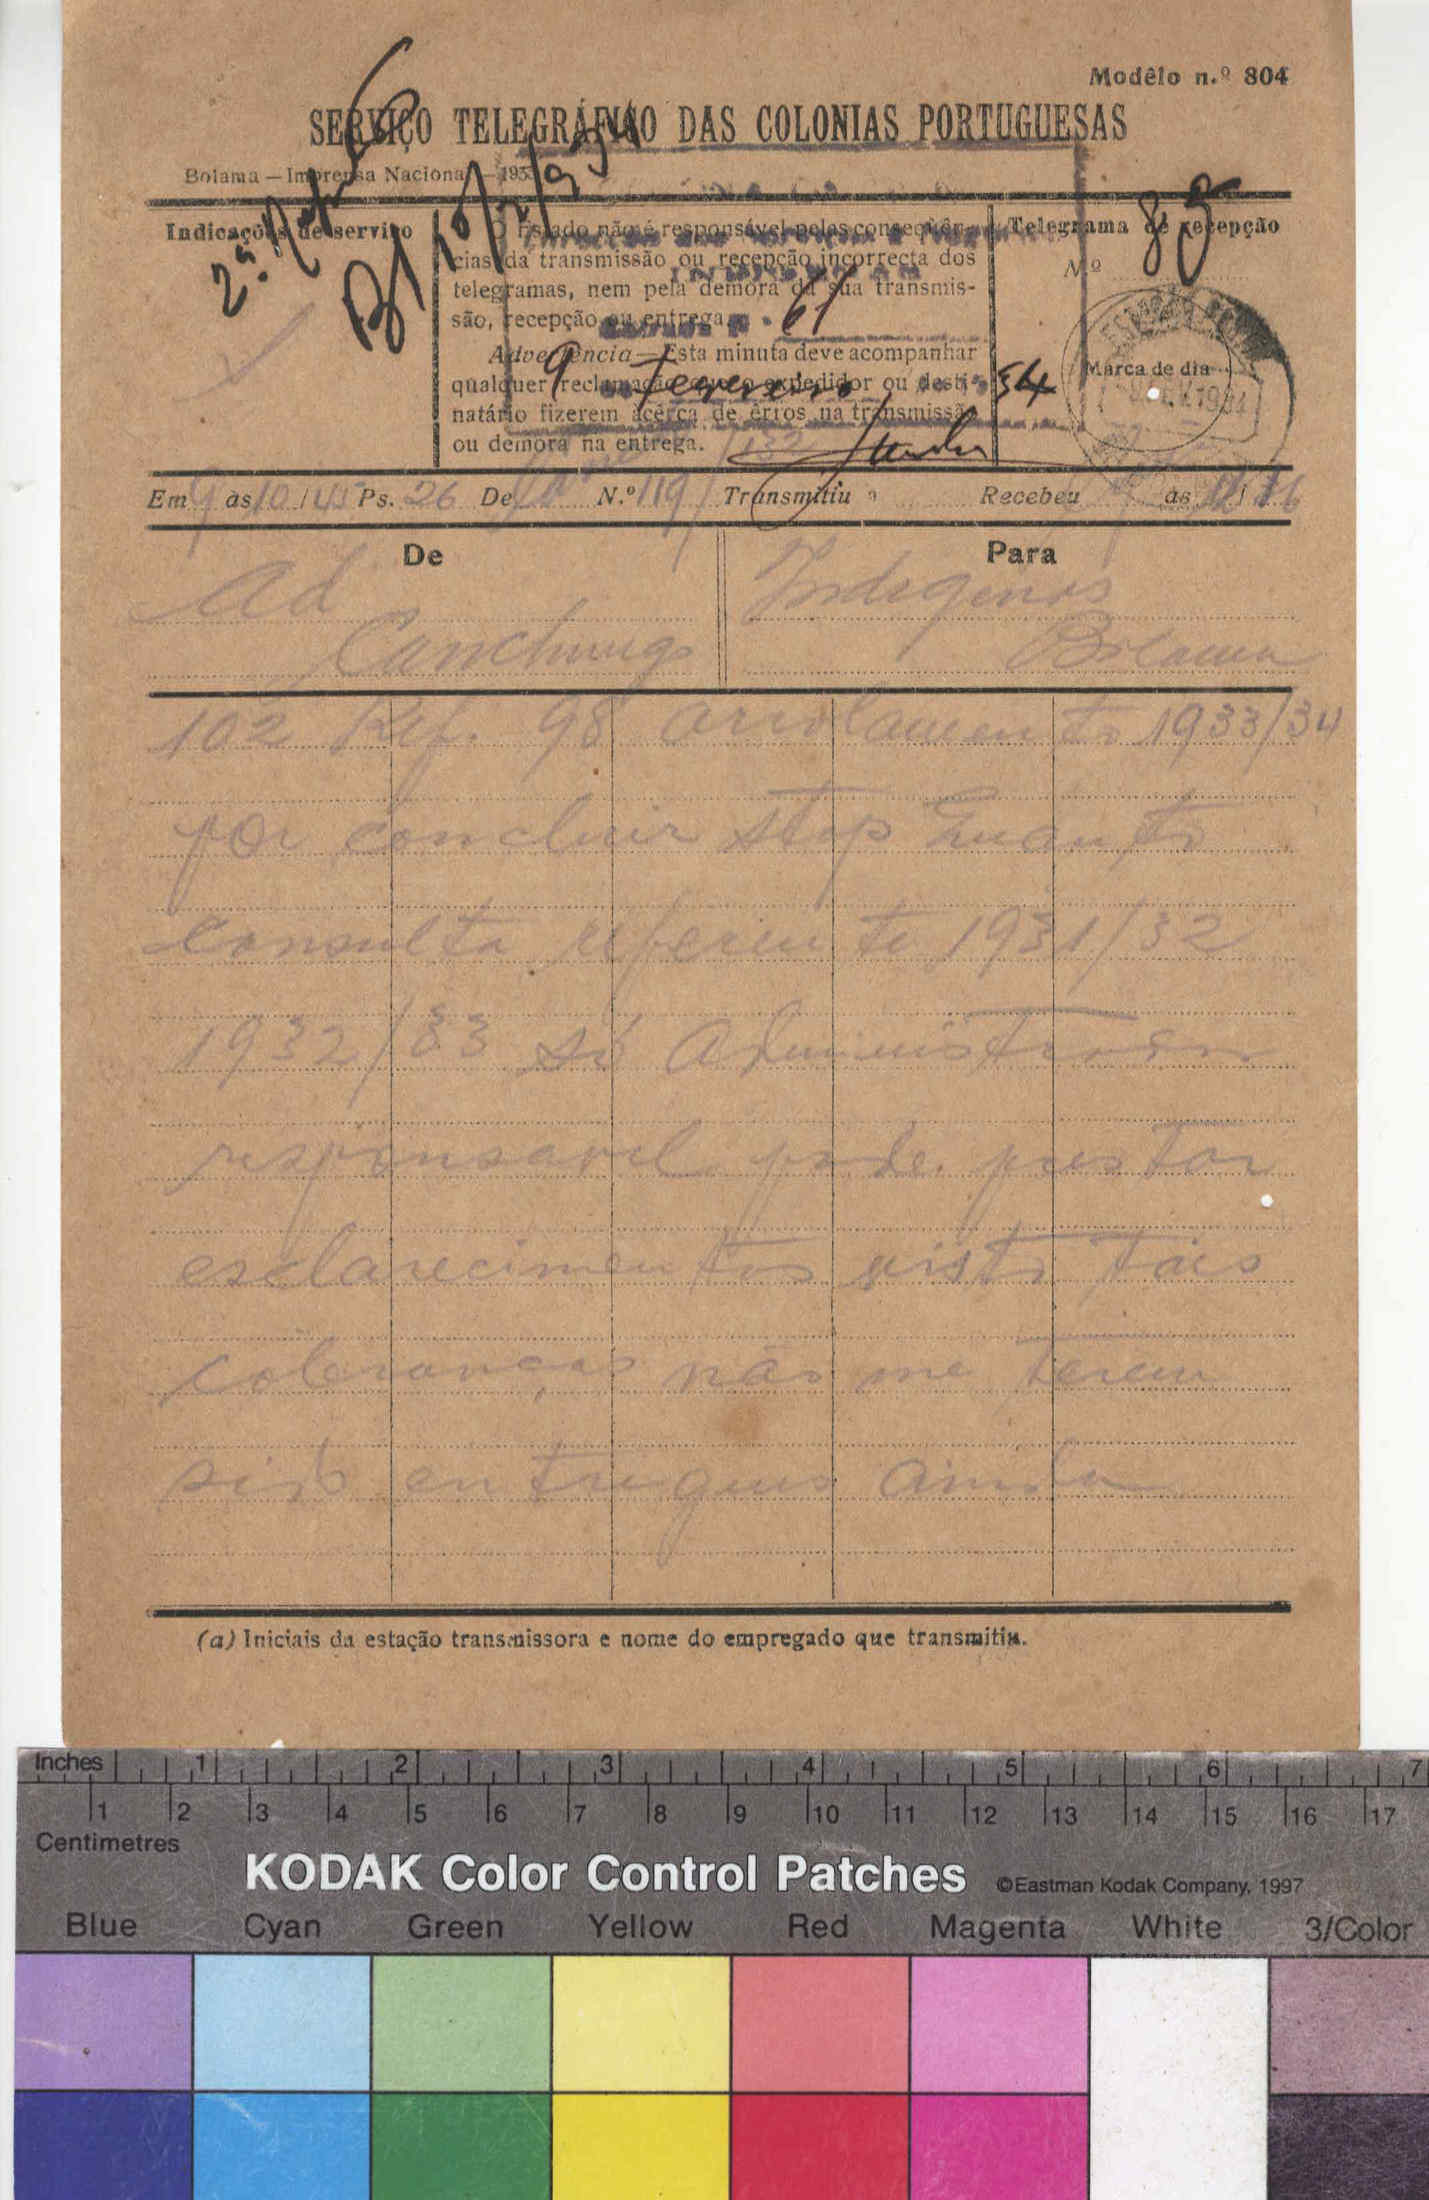 Modêlo n.º 804
SERVIÇO TELEGRÁFICO DAS COLONIAS PORTUGUESAS
Bolama — Imprensa Nacional — 193
2.ª
Indicações de serviço
O Estado não é responsável pelas conseqùên-
cias da transmissão ou recepção incorrecta dos
telegramas, nem pela demora da sua transmis-
são, recepção ou entrega.
61
Advertência — Esta minuta deve acompanhar
qualquer reclamação que o expedidor ou desti-
natário fizerem àcêrca de êrros na transmissão
ou demora na entrega.
9 Fevereiro 34
132
Telegrama de recepção
N.º 85
Marca de dia
Em 9 às 10/45 Ps. 26 De N.º 119 Transmitiu a Recebeu às
De
Para
Ad
Canchungo
Indigenas
Bolama
102 Ref. 98 arrolamento 1933/34
por concluir stop Quanto
consulta referente 1931/32
1932/33 só Administrador
responsavel pode prestar
esclarecimentos visto tais
cobranças não me terem
sido entregues ainda
(a) Iniciais da estação transmissora e nome do empregado que transmitiu.
Inches 1 2 3 4 5 6 7
1 2 3 4 5 6 7 8 9 10 11 12 13 14 15 16 17
Centimetres
KODAK Color Control Patches ©Eastman Kodak Company, 1997
Blue Cyan Green Yellow Red Magenta White 3/Color